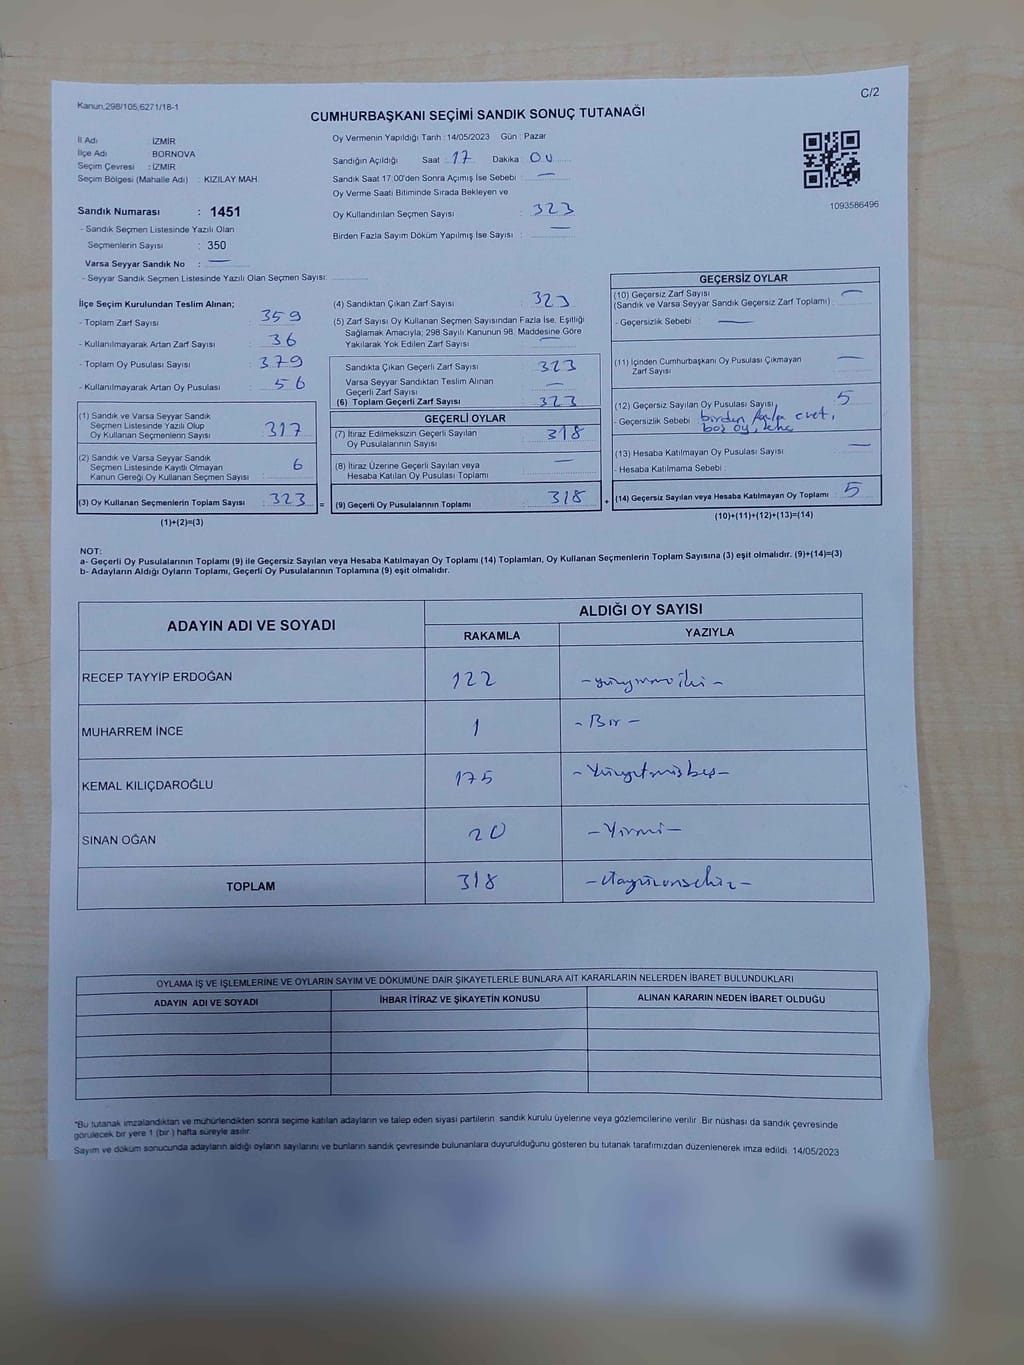 Kanun;298/105;6271/18-1
C/2
CUMHURBAŞKANI SEÇİMİ SANDIK SONUÇ TUTANAĞI
İl Adı : İZMİR
İlçe Adı : BORNOVA
Seçim Çevresi : İZMİR
Seçim Bölgesi (Mahalle Adı) : KIZILAY MAH.
Sandık Numarası : 1451
- Sandık Seçmen Listesinde Yazılı Olan
Seçmenlerin Sayısı : 350
Varsa Seyyar Sandık No : —
- Seyyar Sandık Seçmen Listesinde Yazılı Olan Seçmen Sayısı:
Oy Vermenin Yapıldığı Tarih : 14/05/2023 Gün : Pazar
Sandığın Açıldığı Saat : 17 Dakika : 00
Sandık Saat 17:00'den Sonra Açılmış İse Sebebi : —
Oy Verme Saati Bitiminde Sırada Bekleyen ve
Oy Kullandırılan Seçmen Sayısı : 323
Birden Fazla Sayım Döküm Yapılmış İse Sayısı : —
1093586496
İlçe Seçim Kurulundan Teslim Alınan;
- Toplam Zarf Sayısı : 359
- Kullanılmayarak Artan Zarf Sayısı : 36
- Toplam Oy Pusulası Sayısı : 379
- Kullanılmayarak Artan Oy Pusulası : 56
(1) Sandık ve Varsa Seyyar Sandık
Seçmen Listesinde Yazılı Olup
Oy Kullanan Seçmenlerin Sayısı : 317
(2) Sandık ve Varsa Seyyar Sandık
Seçmen Listesinde Kayıtlı Olmayan
Kanun Gereği Oy Kullanan Seçmen Sayısı : 6
(3) Oy Kullanan Seçmenlerin Toplam Sayısı : 323 =
(1)+(2)=(3)
(4) Sandıktan Çıkan Zarf Sayısı : 323
(5) Zarf Sayısı Oy Kullanan Seçmen Sayısından Fazla İse, Eşitliği
Sağlamak Amacıyla, 298 Sayılı Kanunun 98. Maddesine Göre
Yakılarak Yok Edilen Zarf Sayısı : —
Sandıkta Çıkan Geçerli Zarf Sayısı : 323
Varsa Seyyar Sandıktan Teslim Alınan
Geçerli Zarf Sayısı : —
(6) Toplam Geçerli Zarf Sayısı : 323
GEÇERLİ OYLAR
(7) İtiraz Edilmeksizin Geçerli Sayılan
Oy Pusulalarının Sayısı : 318
(8) İtiraz Üzerine Geçerli Sayılan veya
Hesaba Katılan Oy Pusulası Toplamı : —
(9) Geçerli Oy Pusulalarının Toplamı : 318 +
GEÇERSİZ OYLAR
(10) Geçersiz Zarf Sayısı
(Sandık ve Varsa Seyyar Sandık Geçersiz Zarf Toplamı) : —
- Geçersizlik Sebebi : —
(11) İçinden Cumhurbaşkanı Oy Pusulası Çıkmayan
Zarf Sayısı : —
(12) Geçersiz Sayılan Oy Pusulası Sayısı : 5
- Geçersizlik Sebebi : birden fazla evet,
boş oy, leke
(13) Hesaba Katılmayan Oy Pusulası Sayısı : —
- Hesaba Katılmama Sebebi :
(14) Geçersiz Sayılan veya Hesaba Katılmayan Oy Toplamı : 5
(10)+(11)+(12)+(13)=(14)
NOT:
a- Geçerli Oy Pusulalarının Toplamı (9) ile Geçersiz Sayılan veya Hesaba Katılmayan Oy Toplamı (14) Toplamları, Oy Kullanan Seçmenlerin Toplam Sayısına (3) eşit olmalıdır. (9)+(14)=(3)
b- Adayların Aldığı Oyların Toplamı, Geçerli Oy Pusulalarının Toplamına (9) eşit olmalıdır.
ADAYIN ADI VE SOYADI
ALDIĞI OY SAYISI
RAKAMLA YAZIYLA
RECEP TAYYİP ERDOĞAN 122 - yüzyirmiiki -
MUHARREM İNCE 1 - Bir -
KEMAL KILIÇDAROĞLU 175 - Yüzyetmişbeş -
SİNAN OĞAN 20 - Yirmi -
TOPLAM 318 - Üçyüzonsekiz -
OYLAMA İŞ VE İŞLEMLERİNE VE OYLARIN SAYIM VE DÖKÜMÜNE DAİR ŞİKAYETLERLE BUNLARA AİT KARARLARIN NELERDEN İBARET BULUNDUKLARI
ADAYIN ADI VE SOYADI İHBAR İTİRAZ VE ŞİKAYETİN KONUSU ALINAN KARARIN NEDEN İBARET OLDUĞU
*Bu tutanak imzalandıktan ve mühürlendikten sonra seçime katılan adayların ve talep eden siyasi partilerin sandık kurulu üyelerine veya gözlemcilerine verilir. Bir nüshası da sandık çevresinde
görülecek bir yere 1 (bir ) hafta süreyle asılır.
Sayım ve döküm sonucunda adayların aldığı oyların sayılarını ve bunların sandık çevresinde bulunanlara duyurulduğunu gösteren bu tutanak tarafımızdan düzenlenerek imza edildi. 14/05/2023